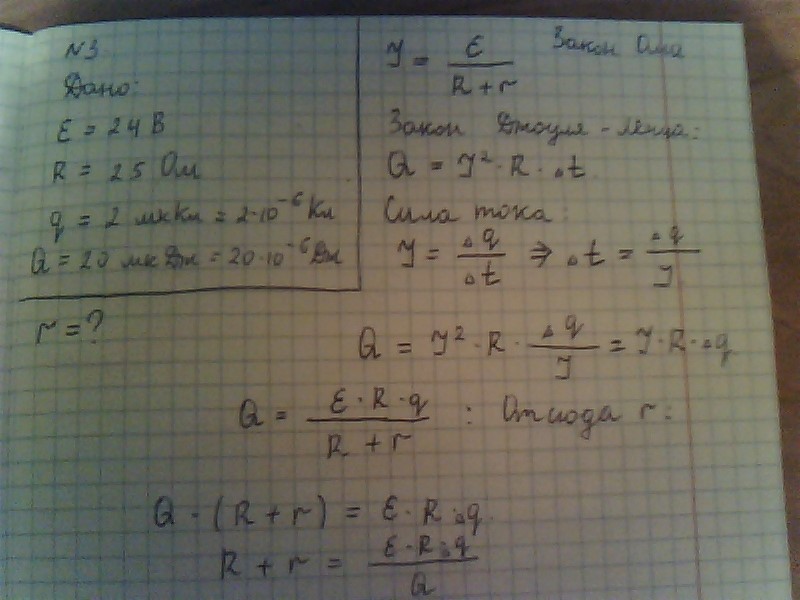 N3
Дано:
ε = 24 В
R = 25 Ом
q = 2 мкКл = 2·10⁻⁶ Кл
Q = 20 мкДж = 20·10⁻⁶ Дж
r = ?
J = ε / (R + r) Закон Ома
Закон Джоуля - Ленца:
Q = J² · R · Δt
Сила тока:
J = Δq / Δt ⇒ Δt = Δq / J
Q = J² · R · Δq / J = J · R · Δq
Q = ε · R · q / (R + r) : Отсюда r:
Q · (R + r) = ε · R · Δq
R + r = ε · R · Δq / Q